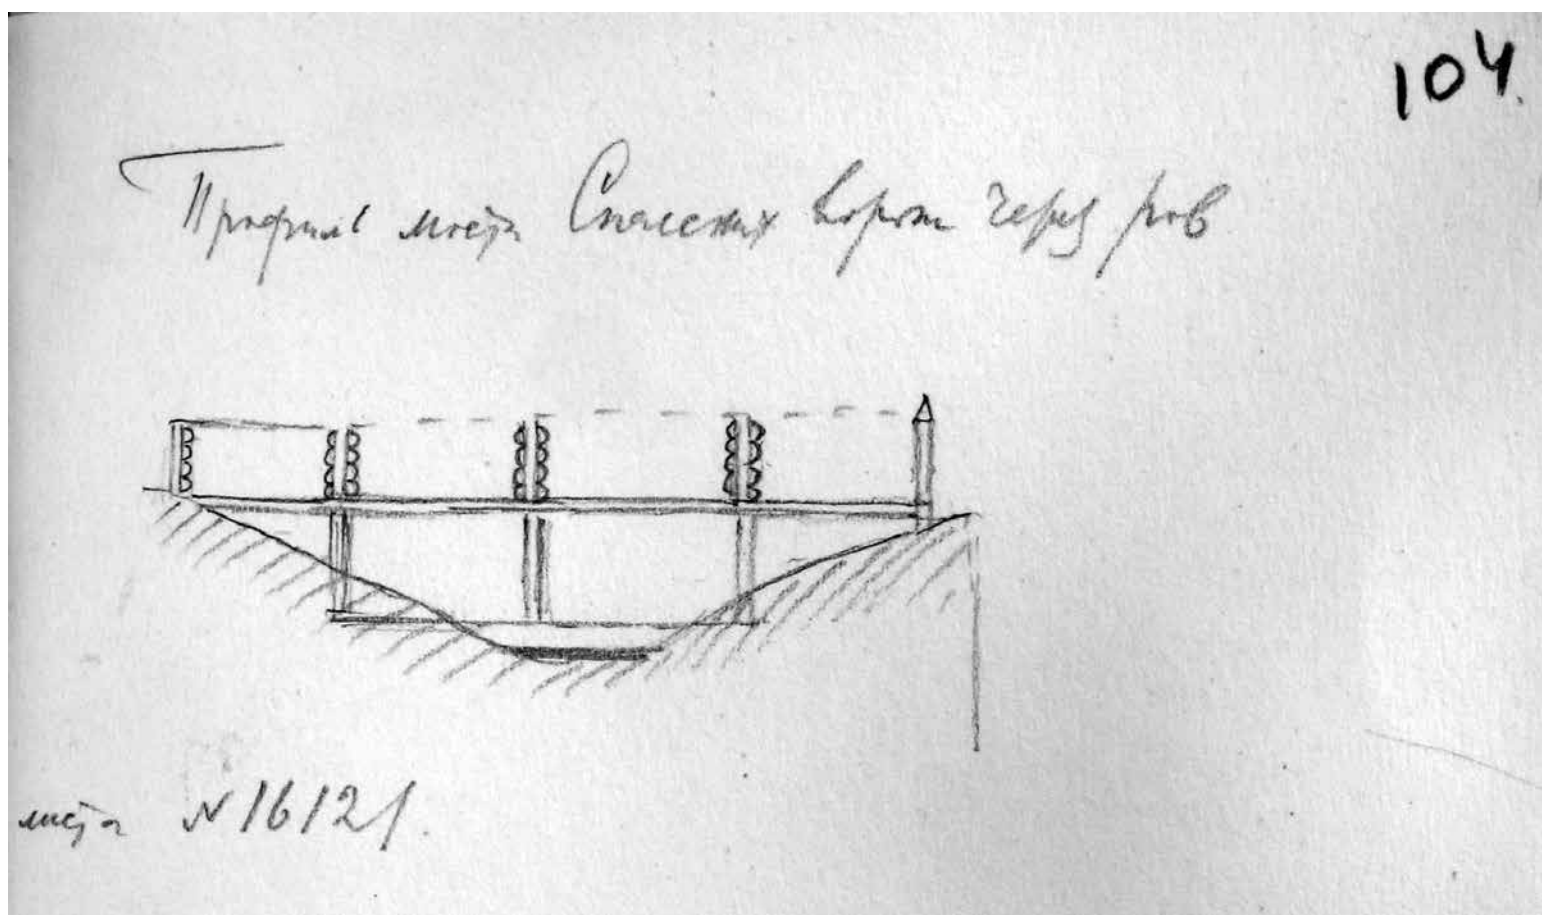 104.
Профиль моста Спасских ворот через ров
листа N 16121.